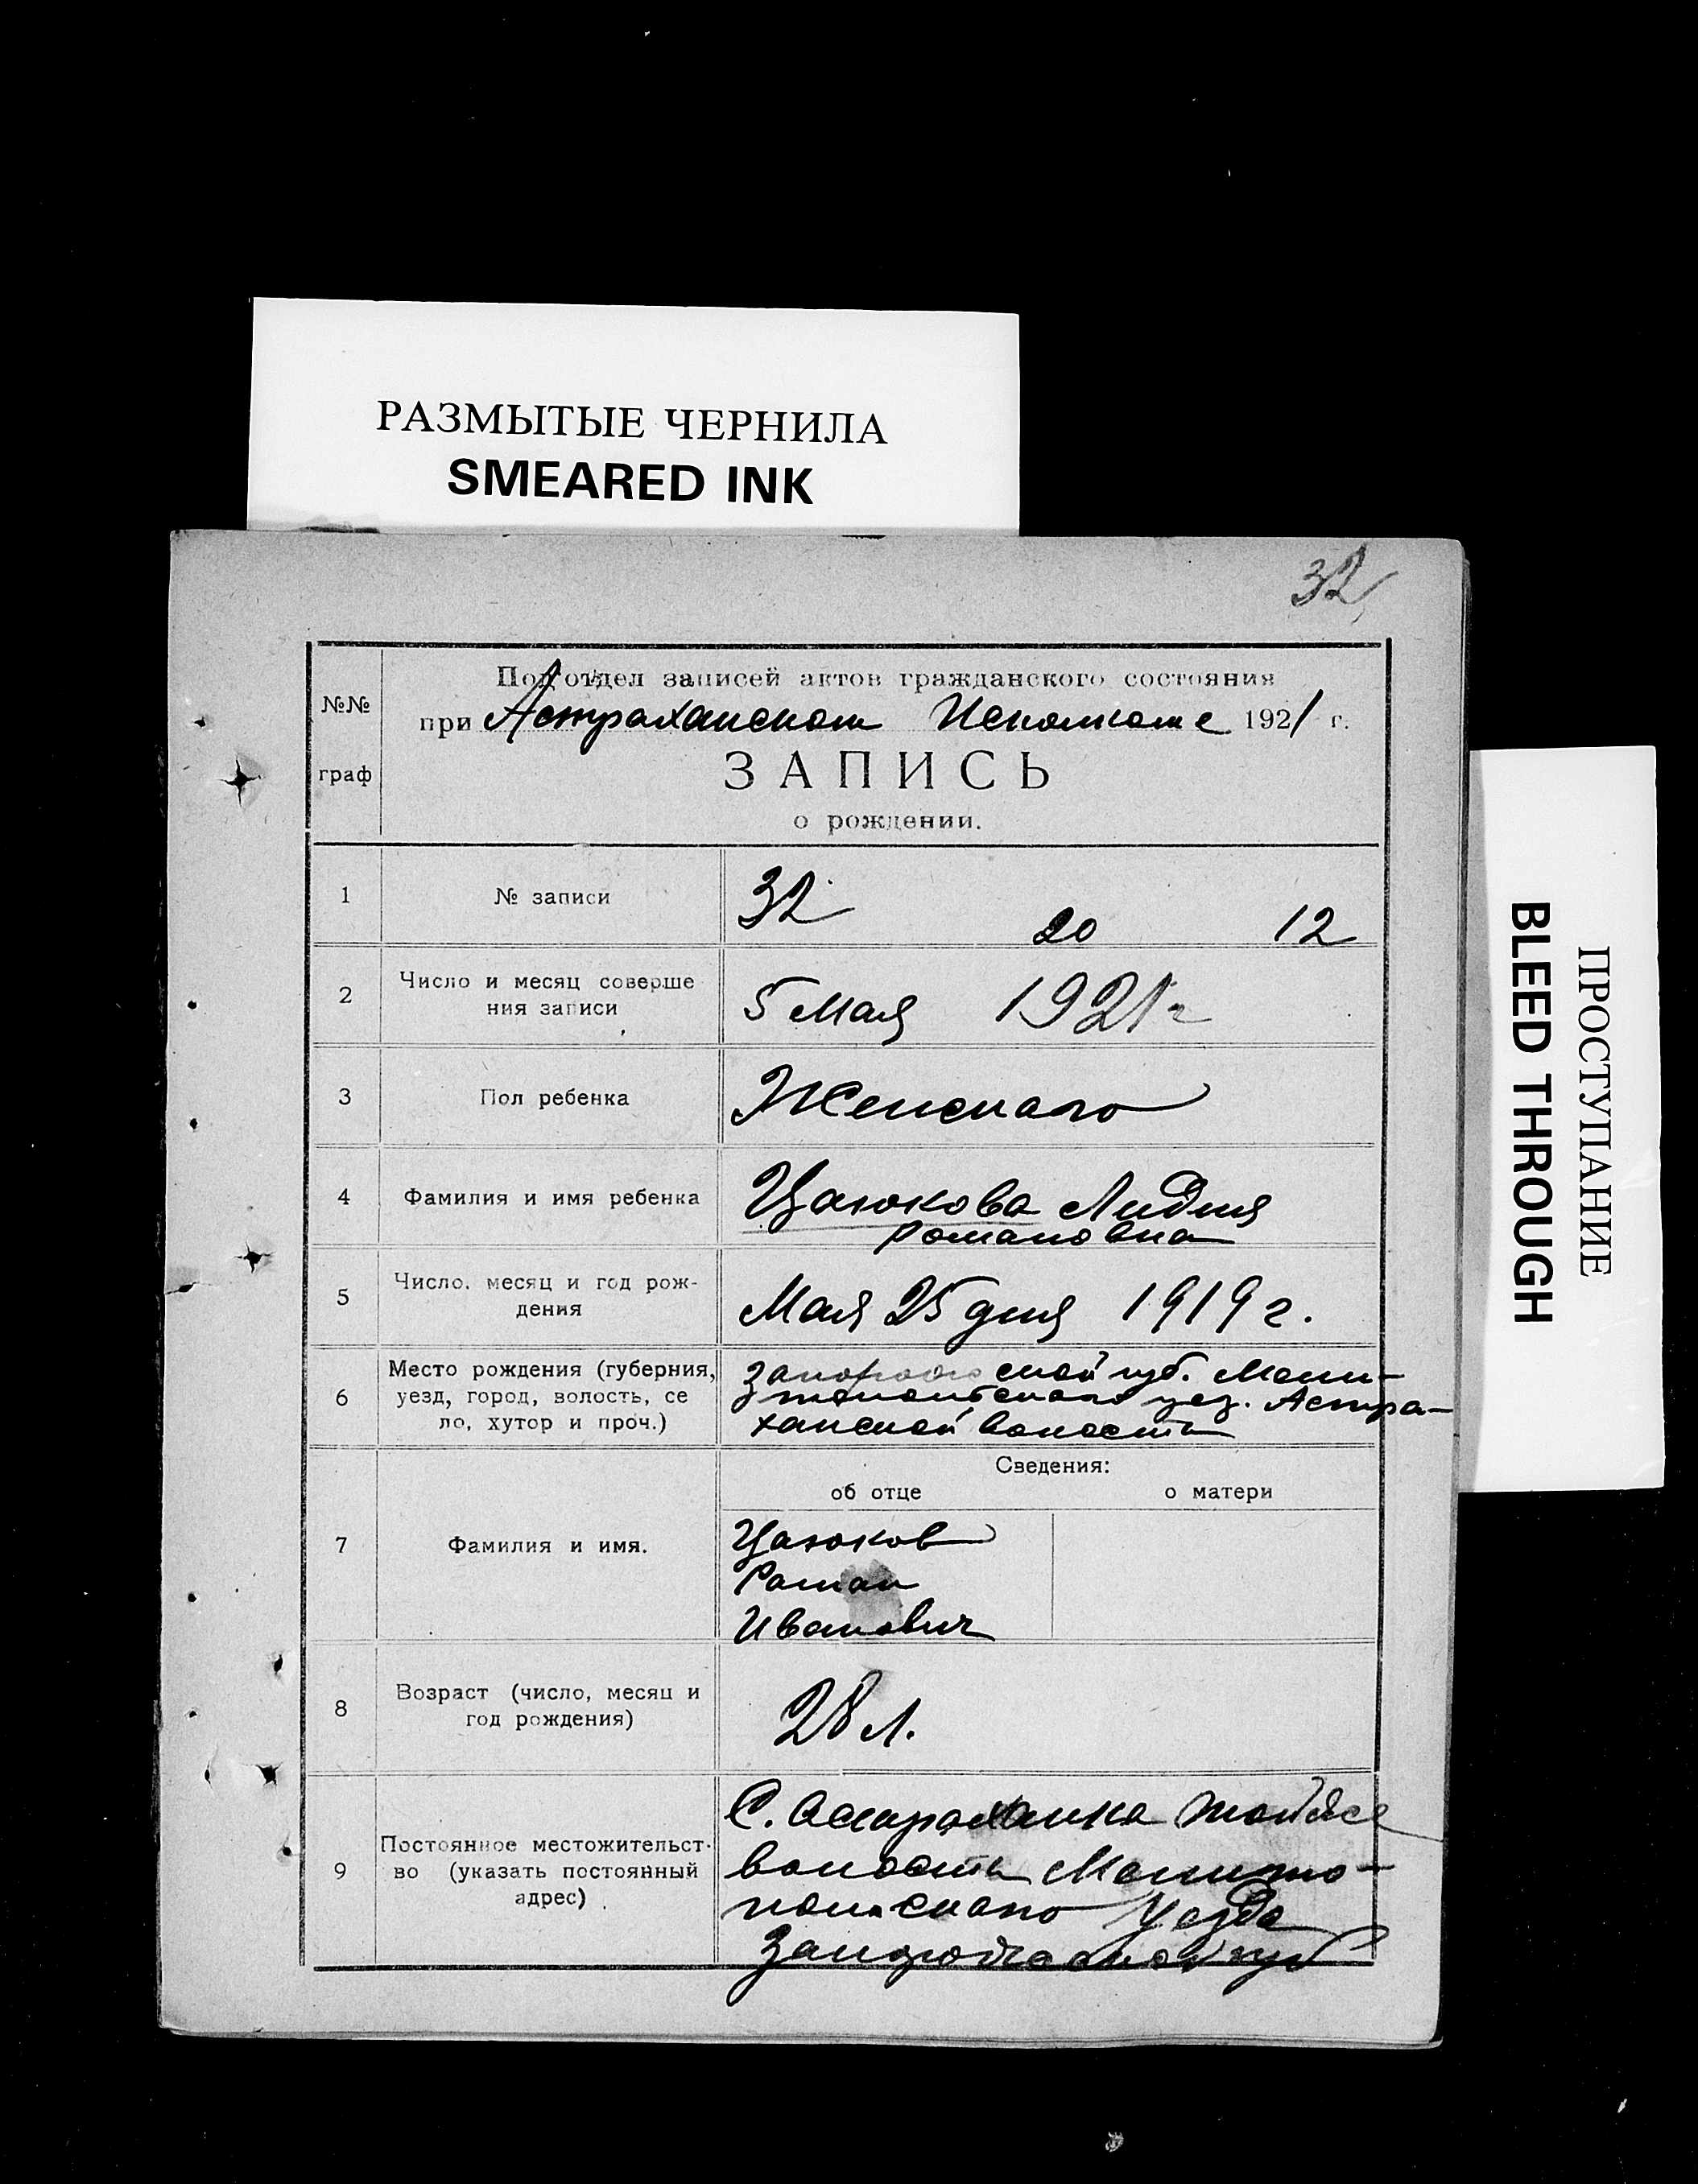 РАЗМЫТЫЕ ЧЕРНИЛА
SMEARED INK
32
Подотдел записей актов гражданского состояния
при Астраханском Исполкоме 1921 г.
№№
граф
ЗАПИСЬ
о рождении.
1 № записи 32
20 12
2 Число и месяц соверше
ния записи
5 Мая 1921 г
3 Пол ребенка Женскаго
4 Фамилия и имя ребенка Цаюкова Лидия
Романовна
5 Число, месяц и год рож-
дения
Мая 25 дня 1919 г.
6 Место рождения (губерния,
уезд, город, волость, се
ло, хутор и проч.)
Запорожской губ. Мели-
топольскаго уез. Астра-
ханской волости
Сведения:
об отце о матери
7 Фамилия и имя.
Цаюков
Роман
Иванович
8 Возраст (число, месяц и
год рождения)
28 л.
9 Постоянное местожительст-
во (указать постоянный
адрес)
С. Астраханка тойже
волости Мелито-
польскаго Уезда
Запорожской губ
ПРОСТУПАНИЕ
BLEED THROUGH